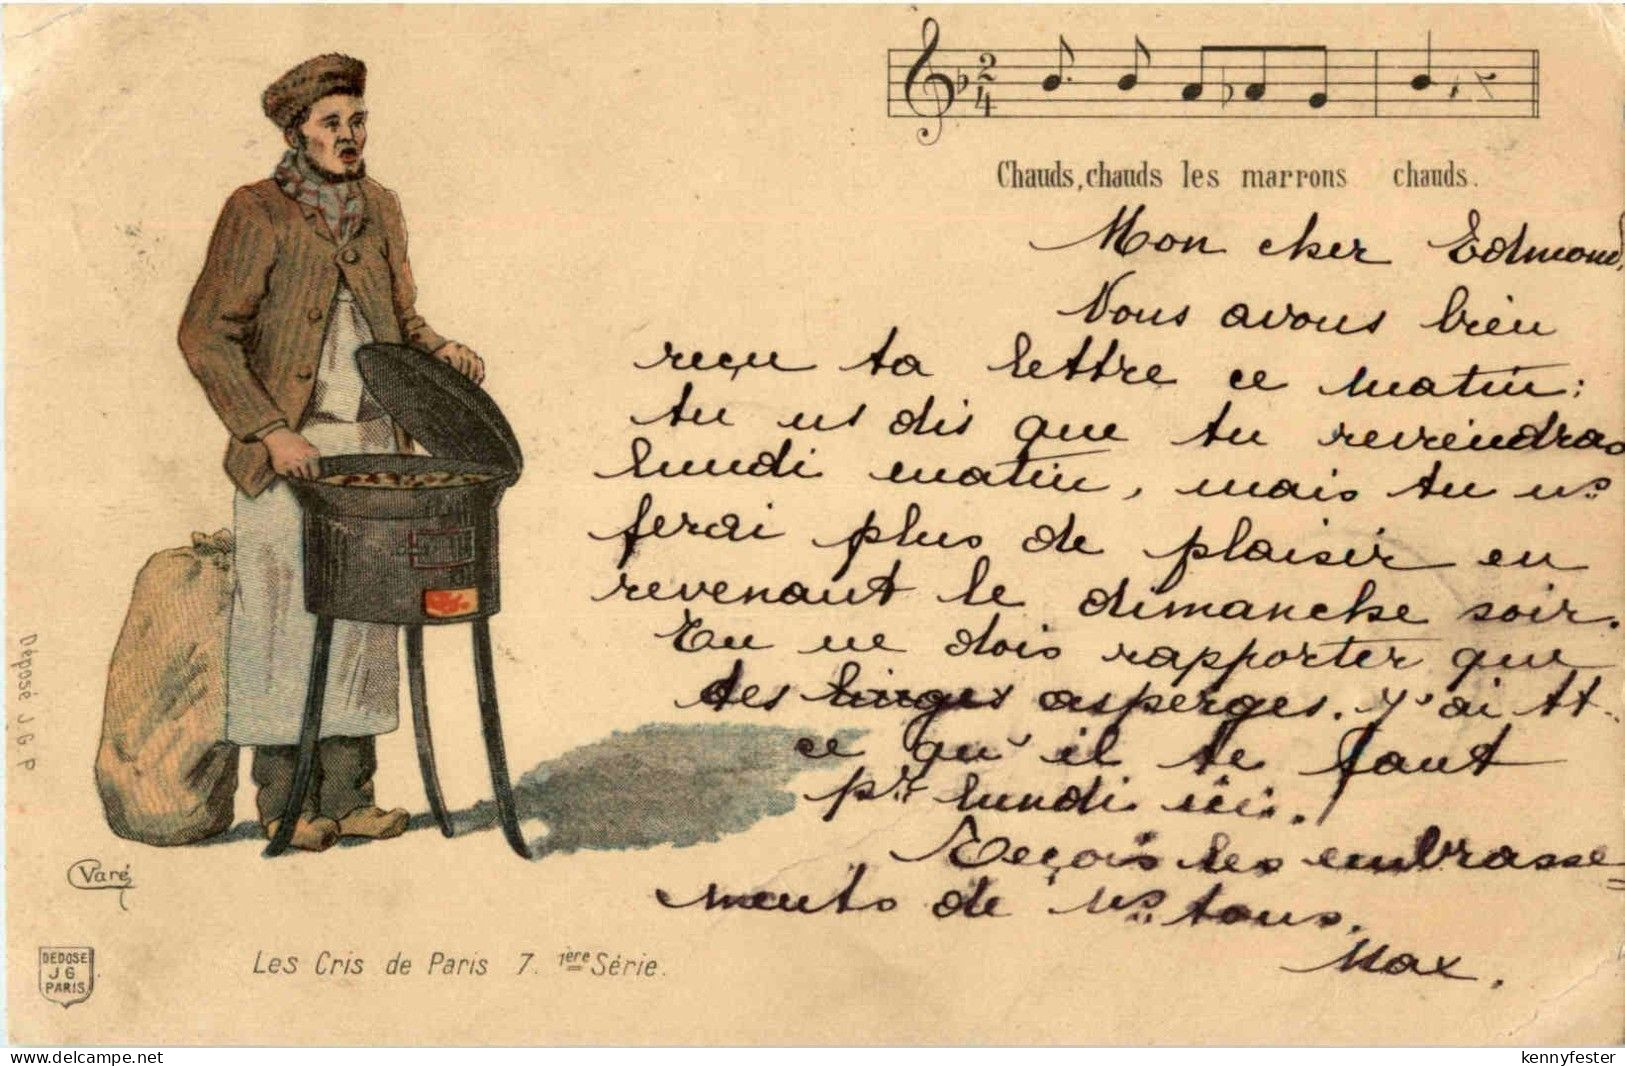 2
4
Chauds, chauds les marrons chauds.
Mon cher Edmond,
Nous avons bien
reçu ta lettre ce matin:
tu ns dis que tu reviendras
lundi matin, mais tu ns
ferai plus de plaisir en
revenant le dimanche soir.
Tu ne dois rapporter que
des linges asperges. J'ai tt
ce qu'il te faut
pr lundi ici.
Reçois les embrasse=
ments de ns tous.
Max.
Déposé J. G. P
Varé
DEDOSE
J G
PARIS
Les Cris de Paris 7. 1ère Série.
delcampe.net
kennyfester